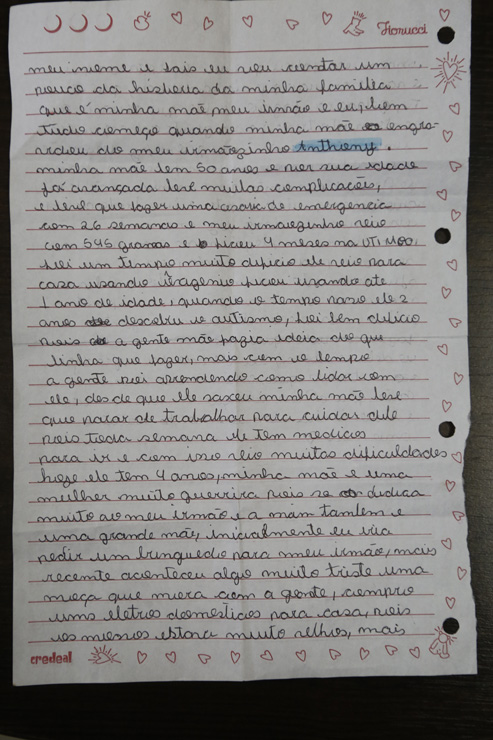 Fiorucci
meu nome e Lais eu vou contar um
pouco da historia da minha familia
que é minha mãe meu irmão e eu, bem
tudo começo quando minha mãe engra-
vidou do meu irmãozinho Anthony.
minha mãe tem 50 anos e por sua idade
foi avançada teve muitas complicacões,
e teve que fazer uma de emergencia
com 26 semanas e meu irmaozinho veio
com 545 gramas e ficou 4 meses na UTI NEO,
foi um tempo muito dificio ele veio para
casa usando oxagenio ficou usando ate
1 ano de idade, quando o tempo passo ele 2
anos descobriu o autismo, foi bem dificio
pois a gente mão fazia ideia do que
tinha que fazer, mais com o tempo
a gente foi aprendendo como lidar com
ele, des de que ele nasceu minha mãe teve
que parar de trabalhar para cuidar dele
pois toda semana ele tem medicos
para ir e com isso veio muitas dificuldades
hoje ele tem 4 anos, minha mãe e uma
mulher muito guerrira pois se dedica
muito ao meu irmão e a mim tambem e
uma grande mãe, inicialmente eu iria
pedir um brinquedo para meu irmão, mais
recente aconteceu algo muito triste uma
moça que mora com a gente, compro
uns eletros domesticos para casa, pois
os mesmos estava muito velhos, mais
credeal